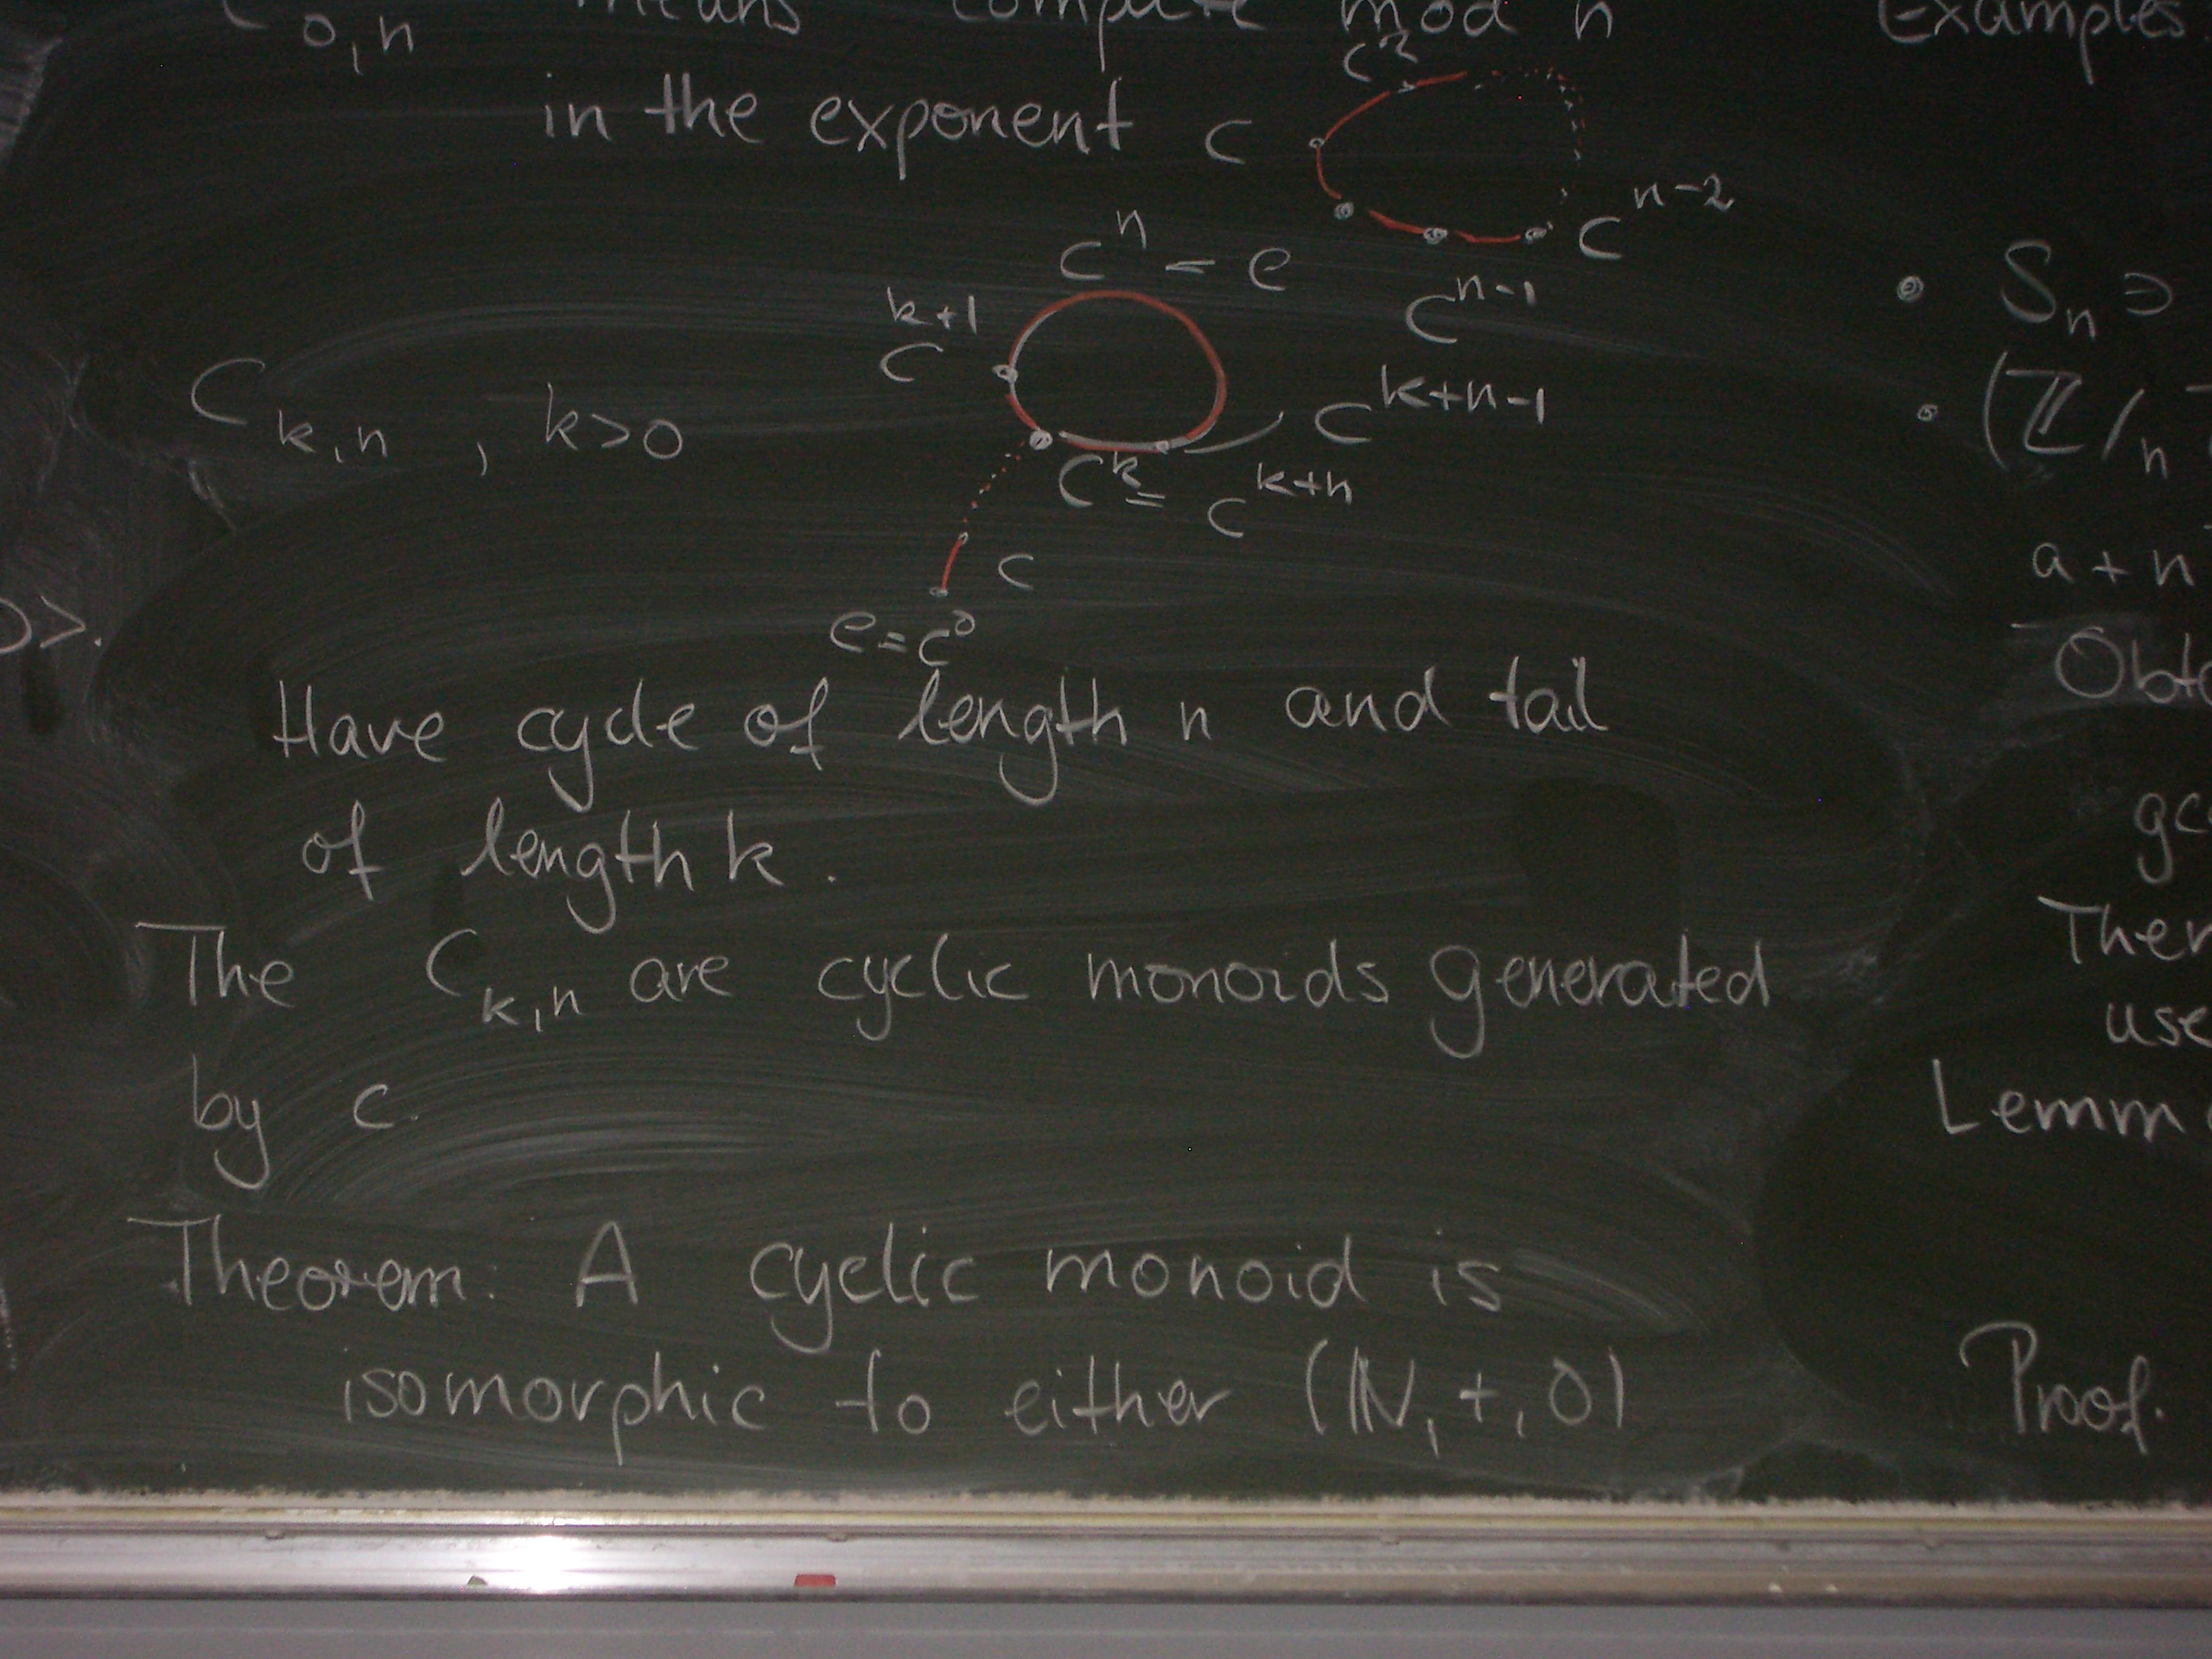 C_{0,n} means compute mod n
in the exponent
c
c^2
c^{n-2}
c^{n-1}
c^n = e
C_{k,n}, k>0
c^{k+1}
c^{k+n-1}
c^k = c^{k+n}
c
e = c^0
Have cycle of length n and tail
of length k.
The C_{k,n} are cyclic monoids generated
by c.
Theorem: A cyclic monoid is
isomorphic to either (ℕ,+,0)
>.
Examples
• S_n ∋
• (ℤ/n
a + n
Obt
gc
Ther
use
Lemm
Proof.